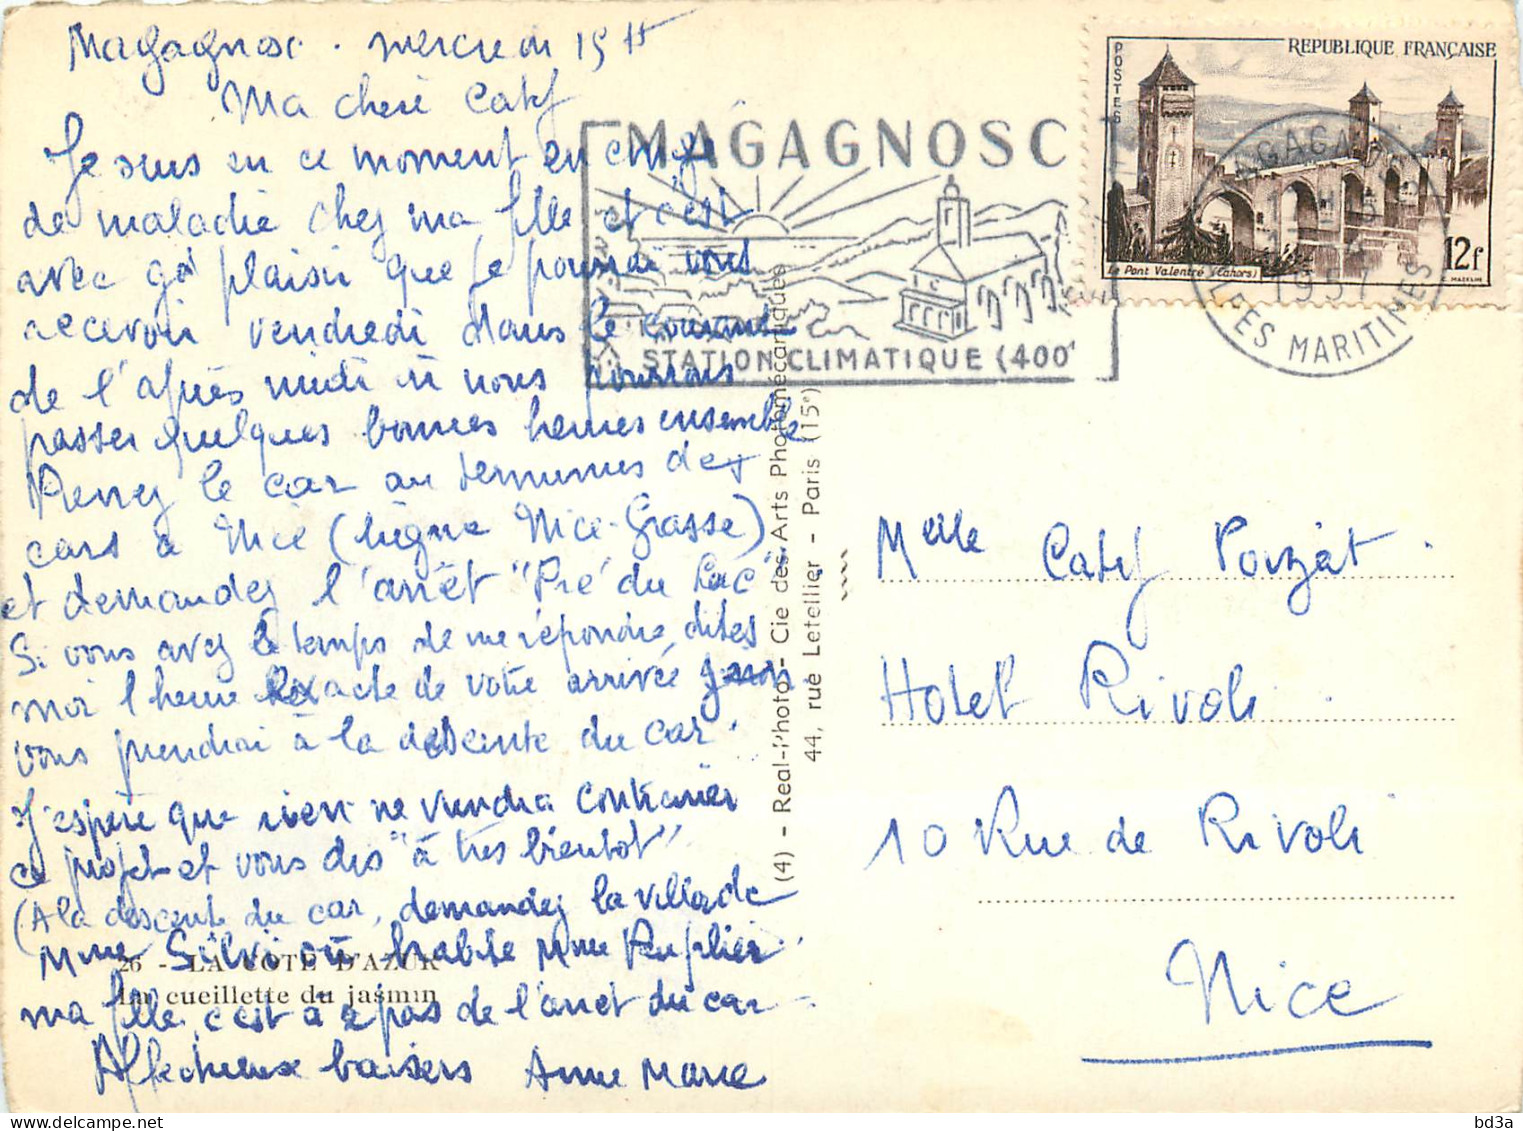 Magagnosc . mercredi 15 H
Ma chère Caty
Je suis en ce moment en congé
de maladie chez ma fille et c'est
avec plaisir que je pourrai vous
recevoir vendredi dans le courant
de l'après midi où nous pourrons
passer quelques bonnes heures ensemble
Prenez le car au terminus des
cars à Nice (ligne Nice-Grasse)
et demandez l'arrêt "Pré du Lac"
Si vous avez le temps de me répondre, dites
moi l'heure exacte de votre arrivée
vous prendrai à la descente du car.
J'espère que rien ne viendra contrarier
ce projet et vous dis "à très bientôt"
(A la descente du car, demandez la villa de
Mme Silvi où habite Mme
ma fille, c'est à 2 pas de l'arrêt du car
Affectueux baisers Anne Marie
26 - LA COTE D'AZUR
La cueillette du jasmin
(4) - Real-Photo - Cie des Arts Photomécaniques
44, rue Letellier - Paris (15e)
MAGAGNOSC
STATION CLIMATIQUE (400
POSTES
REPUBLIQUE FRANÇAISE
Le Pont Valentré (Cahors)
12f
MAGAGNOSC
1957
ALPES MARITIMES
Melle Caty Pouzet.
Hotel Rivoli
10 Rue de Rivoli
Nice
bd3a